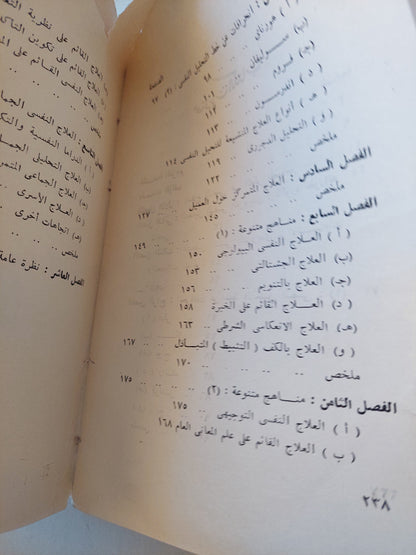 انحرافات عن خط التحليل النفسى (٢) ٩٧
( أ ) هورناى
(ب) سوليفان
(ج) فروم
( د ) الفرسون
( هـ ) أنواع العلاج المتشيعة للتحليل النفسى ١١٤
( و ) التحليل المباشر ١١٩
ملخص ١٢٢
الفصل السادس : العلاج المتمركز حول العميل ١٢٧
ملخص ١٤٥
الفصل السابع : مناهج متنوعة (١) ١٤٩
( أ ) العلاج النفسى البيولوجى ١٥٠
(ب) العلاج الجشتالتى ١٥٣
(جـ) العلاج بالتنويم ١٥٦
( د ) العلاج القائم على الخبرة ١٥٨
(هـ) العلاج الانعكاسى الشرطى ١٦٣
( و ) العلاج بالكف ( التثبيط ) المتبادل ١٦٧
ملخص ١٧٠
الفصل الثامن : مناهج متنوعة (٢) ١٧٥
( أ ) العلاج النفسى التوجيهى ١٧٥
( ب ) العلاج القائم على علم المعانى العام ١٦٨
٢٣٨
العلاج القائم على نظرية
العلاج القائم على تكوين
العلاج النفسى القائم على
ملخص
العلاج النفسى
( أ ) الدراما النفسية
(ب) العلاج التحليل
(ج) العلاج الجماعى
(د) العلاج الأسرى
(هـ) اتجاهات أخرى
ملخص
الفصل العاشر : نظرة عامة